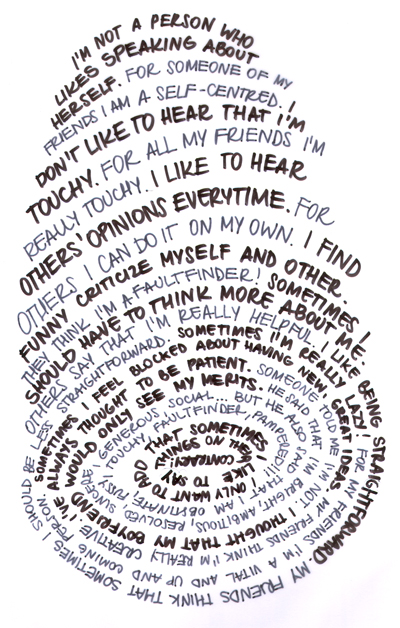 I'M NOT A PERSON WHO
LIKES SPEAKING ABOUT
HERSELF. FOR SOMEONE OF MY
FRIENDS I AM A SELF-CENTRED. I
DON'T LIKE TO HEAR THAT I'M
TOUCHY. FOR ALL MY FRIENDS I'M
REALLY TOUCHY. I LIKE TO HEAR
OTHERS' OPINIONS EVERYTIME. FOR
OTHERS I CAN DO IT ON MY OWN. I FIND
FUNNY CRITICIZE MYSELF AND OTHER.
THEY THINK I'M A FAULTFINDER! SOMETIMES I
SHOULD HAVE TO THINK MORE ABOUT ME.
OTHERS SAY THAT I'M REALLY HELPFUL. I LIKE BEING STRAIGHTFORWARD. MY FRIENDS THINK THAT SOMETIMES I SHOULD BE
LESS STRAIGHTFORWARD. SOMETIMES I'M REALLY LAZY! FOR MY FRIENDS I'M A VITAL AND UP AND COMING PERSON.
SOMETIMES I FEEL BLOCKED ABOUT HAVING NEW, GREAT IDEAS. MY FRIENDS THINK I'M REALLY CREATIVE. I'VE
ALWAYS THOUGHT TO BE PATIENT. SOMEONE TOLD ME I'M NOT. I THOUGHT THAT MY BOYFRIEND
WOULD ONLY SEE MY MERITS. HE SAID THAT I'M BRIGHT, AMBITIOUS, RESOLVED, SINCERE,
GENEROUS, SOCIAL... BUT HE ALSO SAID THAT I AM OBSTINATE,
TOUCHY, FAULTFINDER, PAMPERED!!! I ONLY WANT TO ADD
THAT SOMETIMES I LIKE TO SAY
THINGS ON THE
CONTRARY!!!